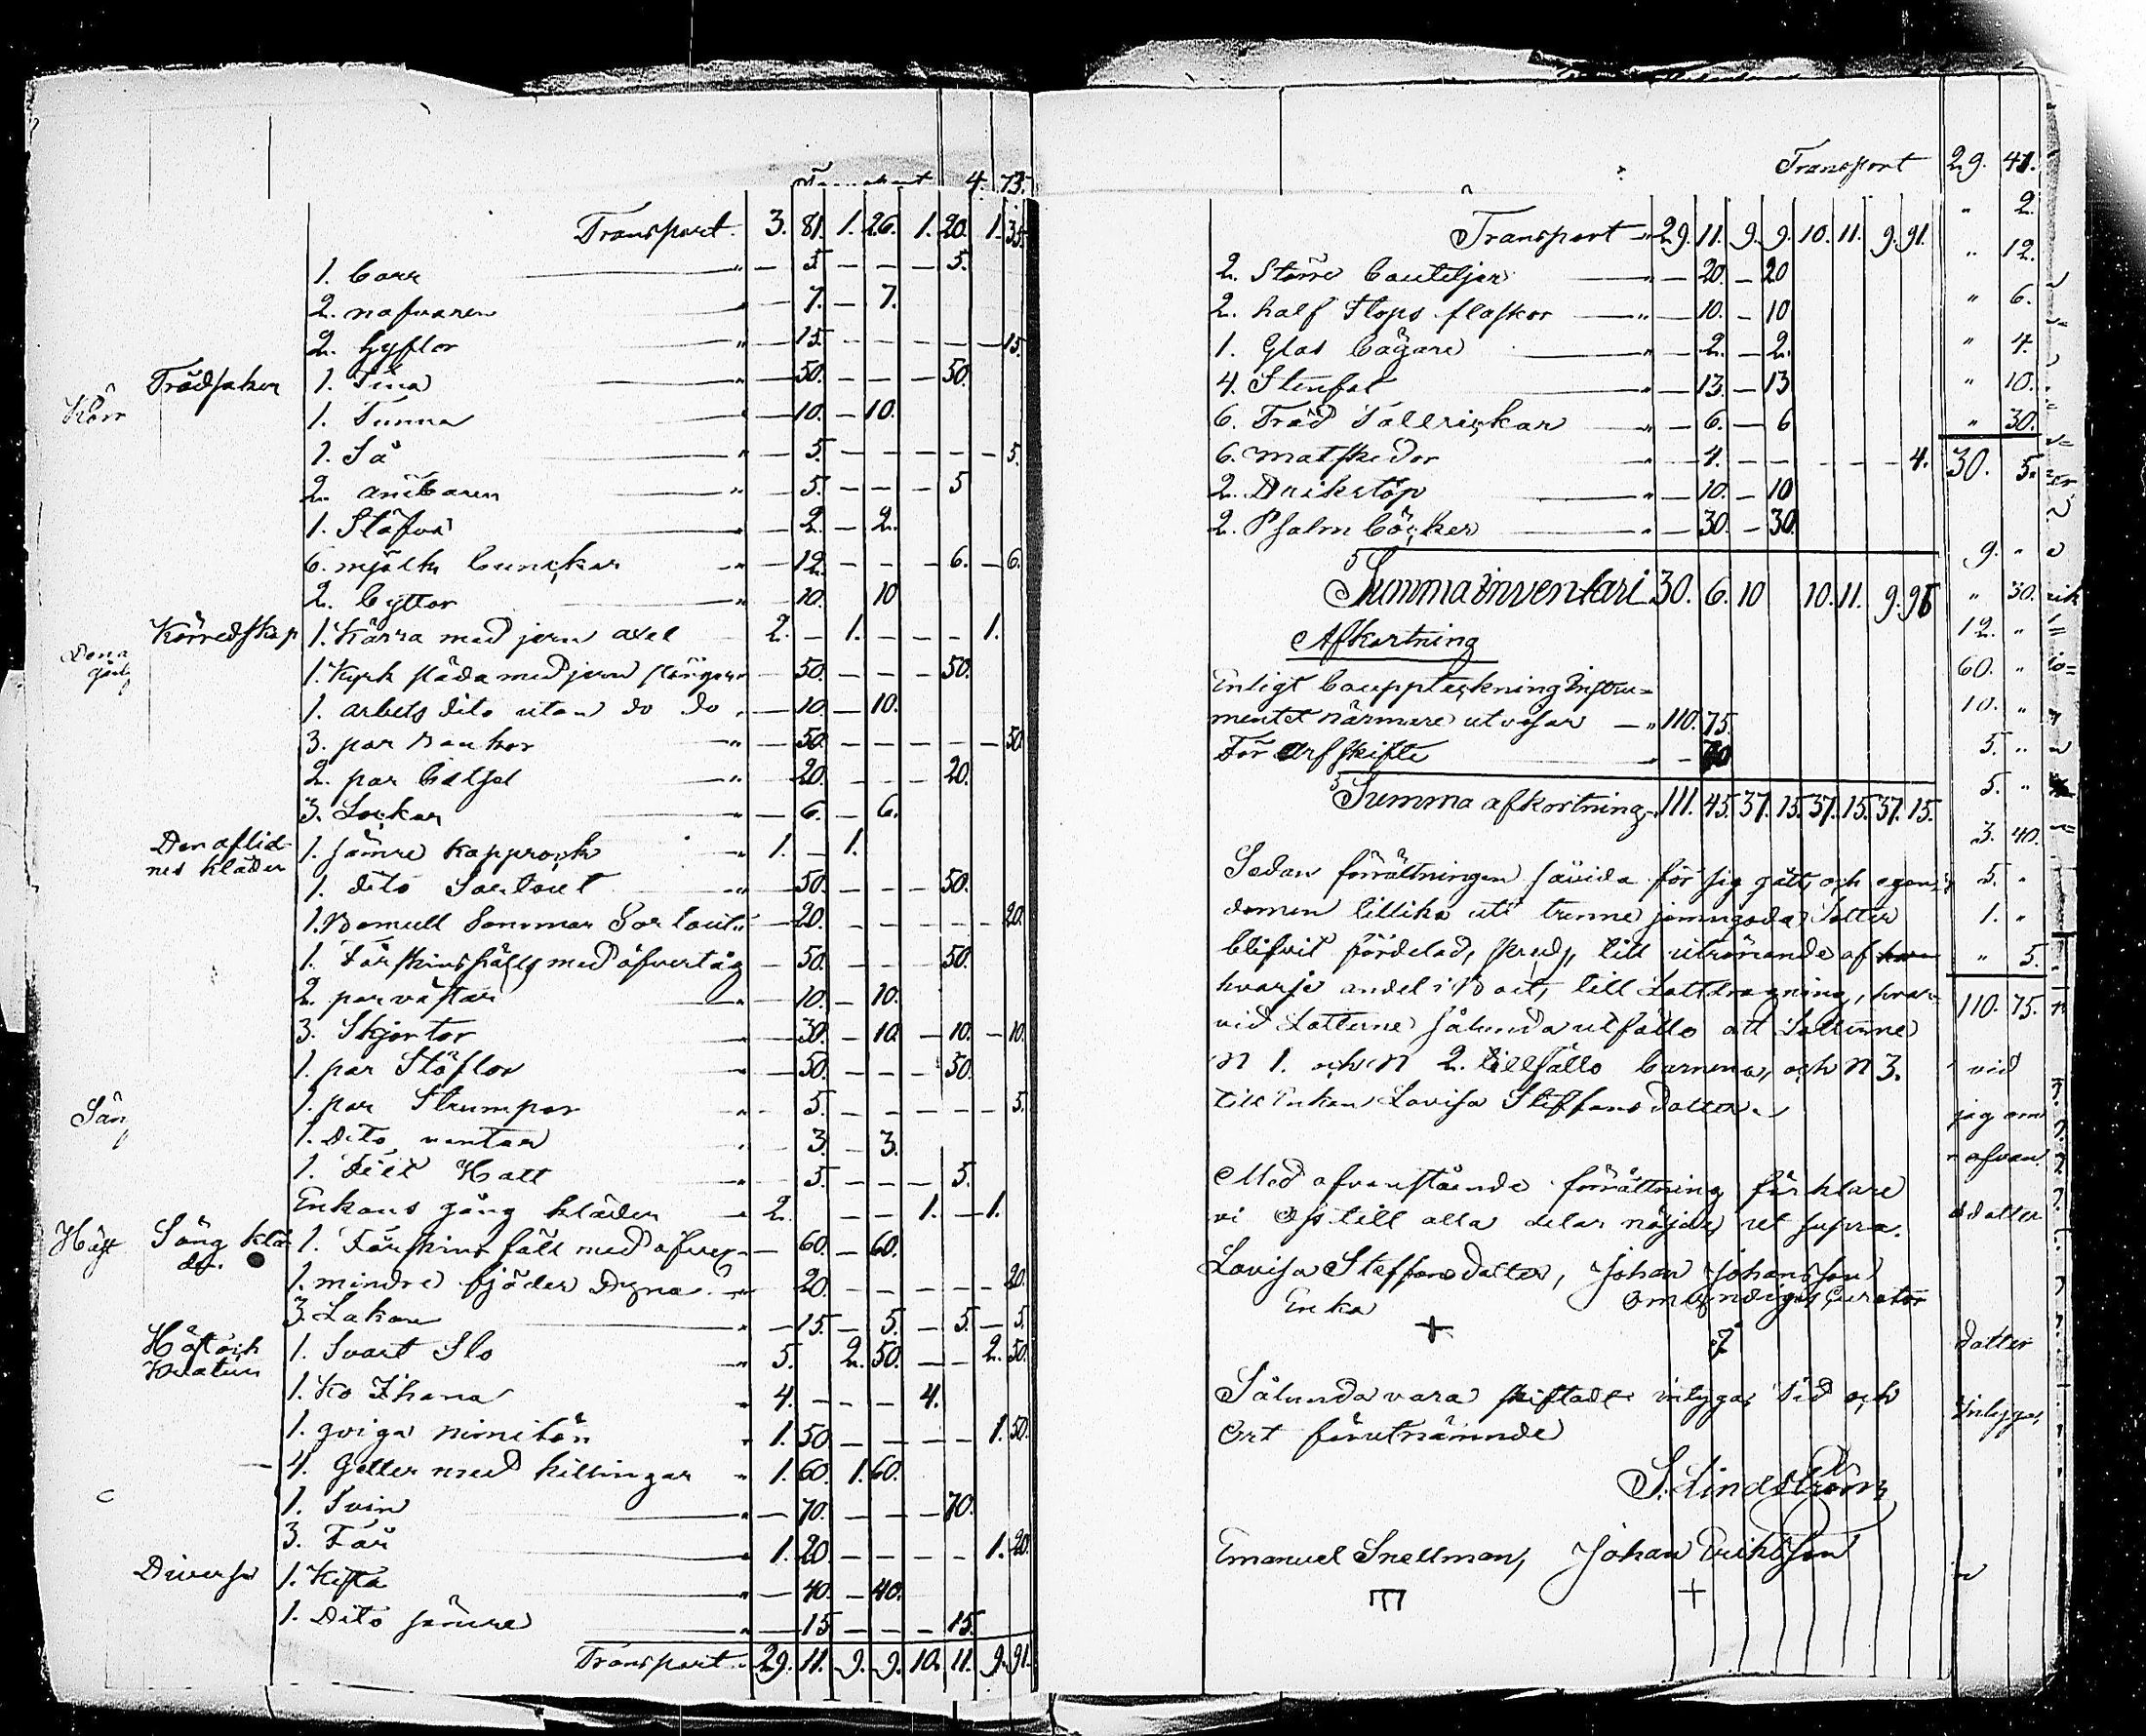 Transport 4. 73.
Transport 3. 81. 1. 26. 1. 20. 1. 35.
1. Carr " — 5 — — — 5.
2. nafvaren " — 7. — 7.
2. hyflor " — 15. — — — — — 15.
Trädsaker 1. Tina " — 50. — — — 50.
Kärr
1. Tunna " — 10. — 10.
1. Så " — 5. — — — — — 5.
2. ämbaren " — 5. — — — 5
1. Stäfva " — 2. — 2.
6. mjölk bunckar " — 12. — — — 6. — 6.
2. byttor — 10. 10
Körredskap 1. Kärra med jern axel 2. — 1. — — — 1.
1. Kyrk släda med jern stänger — 50. — — — 50.
1. arbets dito utan do do — 10. — 10.
3. par Rankor " — 50. — — — — — 50
2. par betsel " — 20. — — — 20.
3. Lockar " — 6. — 6.
Den aflid- 1. sämre kapprock " 1. — 1.
nes kläder
1. dito Sortout " — 50. — — — 50.
1. Bomull Sommar Sortout " — 20. — — — — — 20.
1. Fårskinsfäll med öfvertåg — 50. — — — 50.
2. par västar " — 10. — 10.
3. Skjortor — 30. — 10. — 10. — 10.
1. par Stöflor — 50. — — — 50.
1. par Strumpor " — 5. — — — — — 5.
1. Dito vantar — 3. — 3.
1. Filt Hatt " — 5. — — — 5.
Enkans gång kläder " 2. — — 1. — 1.
Säng klä- 1. Fårskins fäll med öfver — 60. — 60.
der.
1. mindre fjäder Dyna " — 20. — — — — — 20.
3. Lakan " — 15. — 5. — 5. — 5.
Häst och 1. Svart Sto " 5. 2. 50. — — 2. 50.
Kreatur
1. Ko Ihana " 4. — — — 4.
1. qviga nimitön " 1. 50. — — — — 1. 50.
4. Getter med killingar " 1. 60. 1. 60.
1. Svin " — 70. — — — 70.
3. Får " 1. 20. — — — — 1. 20.
Diverse 1. Kista " — 40. — 40.
1. Dito sämre " — 15 — — — 15.
Transport 29. 11. 9. 9. 10. 11. 9. 91.
Transport 29. 41.
Transport " 29. 11. 9. 9. 10. 11. 9. 91.
2. Större bouteljer " — 20. — 20
2. half Stops flaskor " — 10. — 10
1. Glas bägare " — 2. — 2.
4. Stenfat " — 13. — 13
6. Träd Tallrickar " — 6. — 6
6. matskedor " — 4. — — — — — 4.
2. Drikstop " — 10. — 10
2. Psalm böcker " — 30. — 30.
Summa inventari 30. 6. 10 10. 11. 9. 95
Afkortning
Enligt bouppteckning Instru-
mentet närmare utvisar — " 110. 75.
För arfskifte " — 70
Summa afkortning 111. 45. 37. 15. 37. 15. 37. 15.
Sedan förrättningen såvida för sig gått, och egen-
domen tillika uti trenne jemngoda Lotter
blifvit fördelad, skreds, till utrönande af
hvarje andel i Boet, till Lottdragning, hvar-
vid Lotterne sålunda utföllo att Lotterne
N 1. och N 2. tillföllo barnena, och N 3.
till Enkan Lovisa Steffansdotter.
Med ofvanstående förrättning förklare
vi Oss till alla delar nöjde, ut supra.
Lovisa Steffansdotter, Johan Johansson
Enka Omyndigas Curator
+
Sålunda vara skiftadt intyga, Tid och
Ort förutnämnde
S. Lindström
Emanuel Snellman, Johan Eriksson
+
" 2.
" 12.
" 6.
" 4.
" 10.
" 30.
30. 5.
9. "
" 30.
12. "
60. "
10. "
5. "
5. "
3. 40.
5. "
1. "
" 5.
110. 75.
vid
jag om
ofvan
dotter
dotter
Intyga,